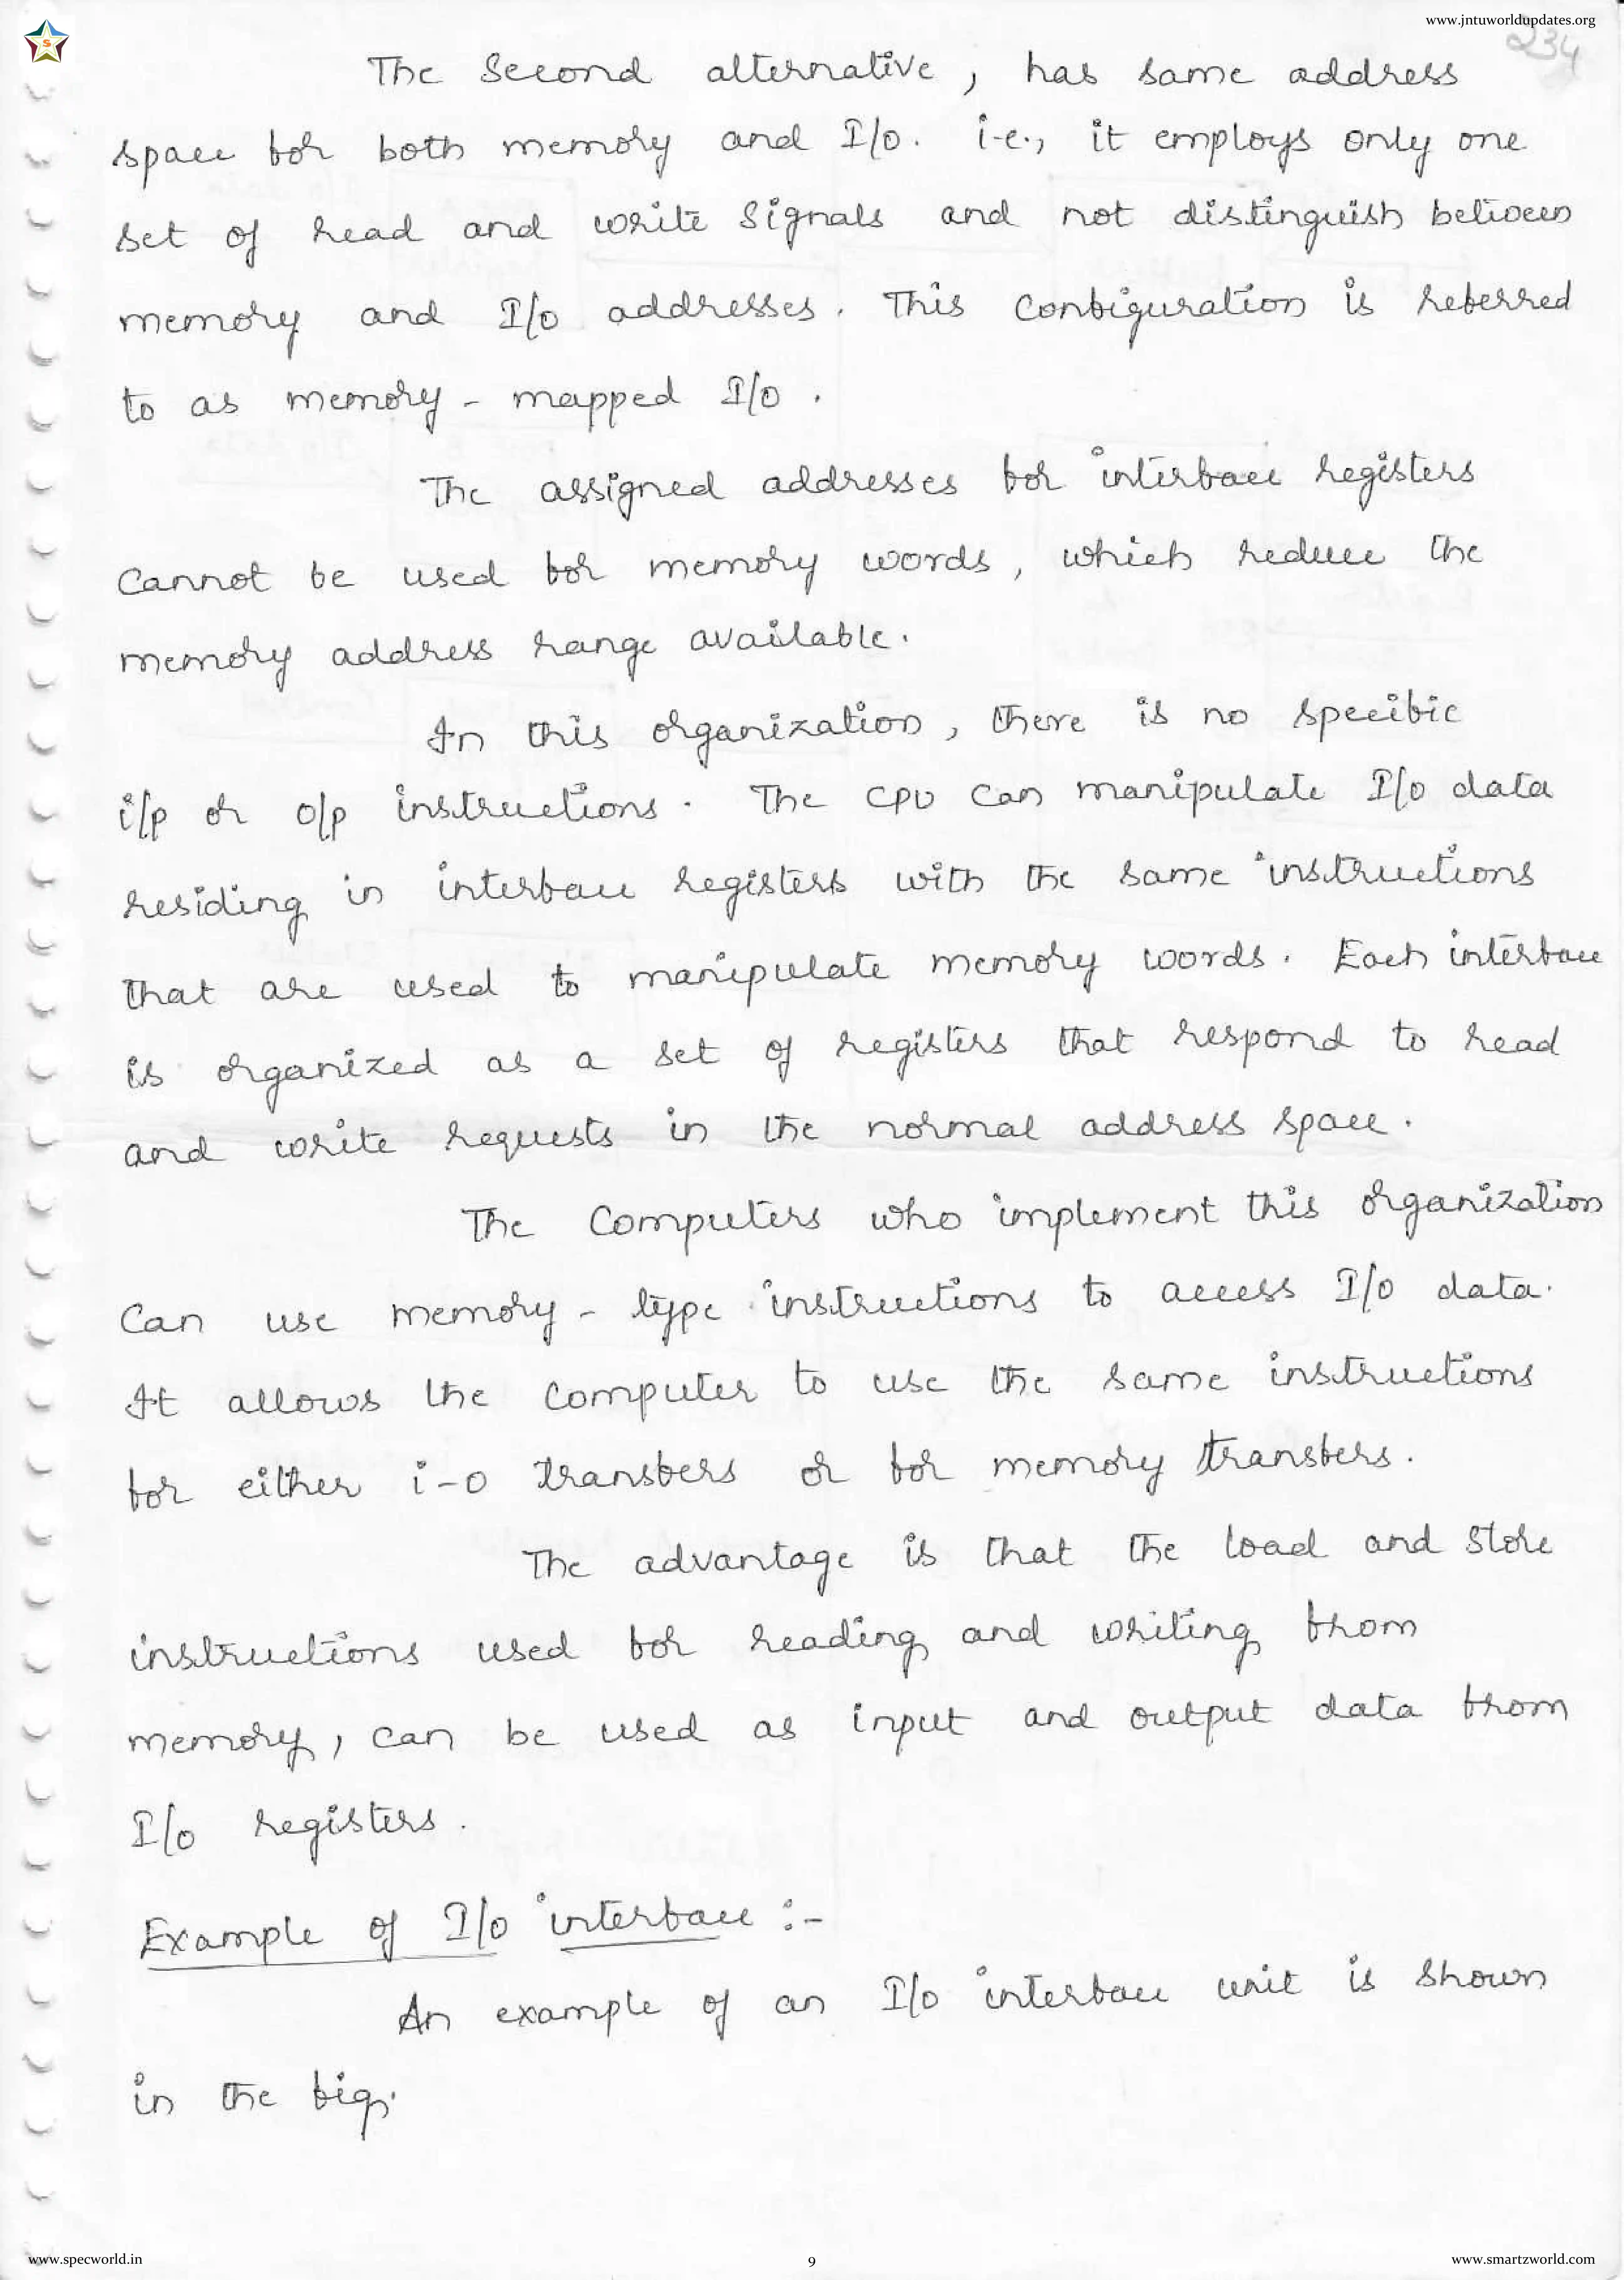 www.jntuworldupdates.org
234
The Second alternative, has same address
space for both memory and I/O. i.e., it employs only one
set of read and write signals and not distinguish between
memory and I/O addresses. This configuration is referred
to as memory-mapped I/O.
The assigned addresses for interface registers
cannot be used for memory words, which reduce the
memory address range available.
In this organization, there is no specific
i/p or o/p instructions. The CPU can manipulate I/O data
residing in interface registers with the same instructions
that are used to manipulate memory words. Each interface
is organized as a set of registers that respond to read
and write requests in the normal address space.
The computers who implement this organization
can use memory-type instructions to access I/O data.
It allows the computer to use the same instructions
for either i-o transfers or for memory transfers.
The advantage is that the load and store
instructions used for reading and writing from
memory, can be used as input and output data from
I/O registers.
Example of I/O interface :-
An example of an I/O interface unit is shown
in the fig.
www.specworld.in
9
www.smartzworld.com